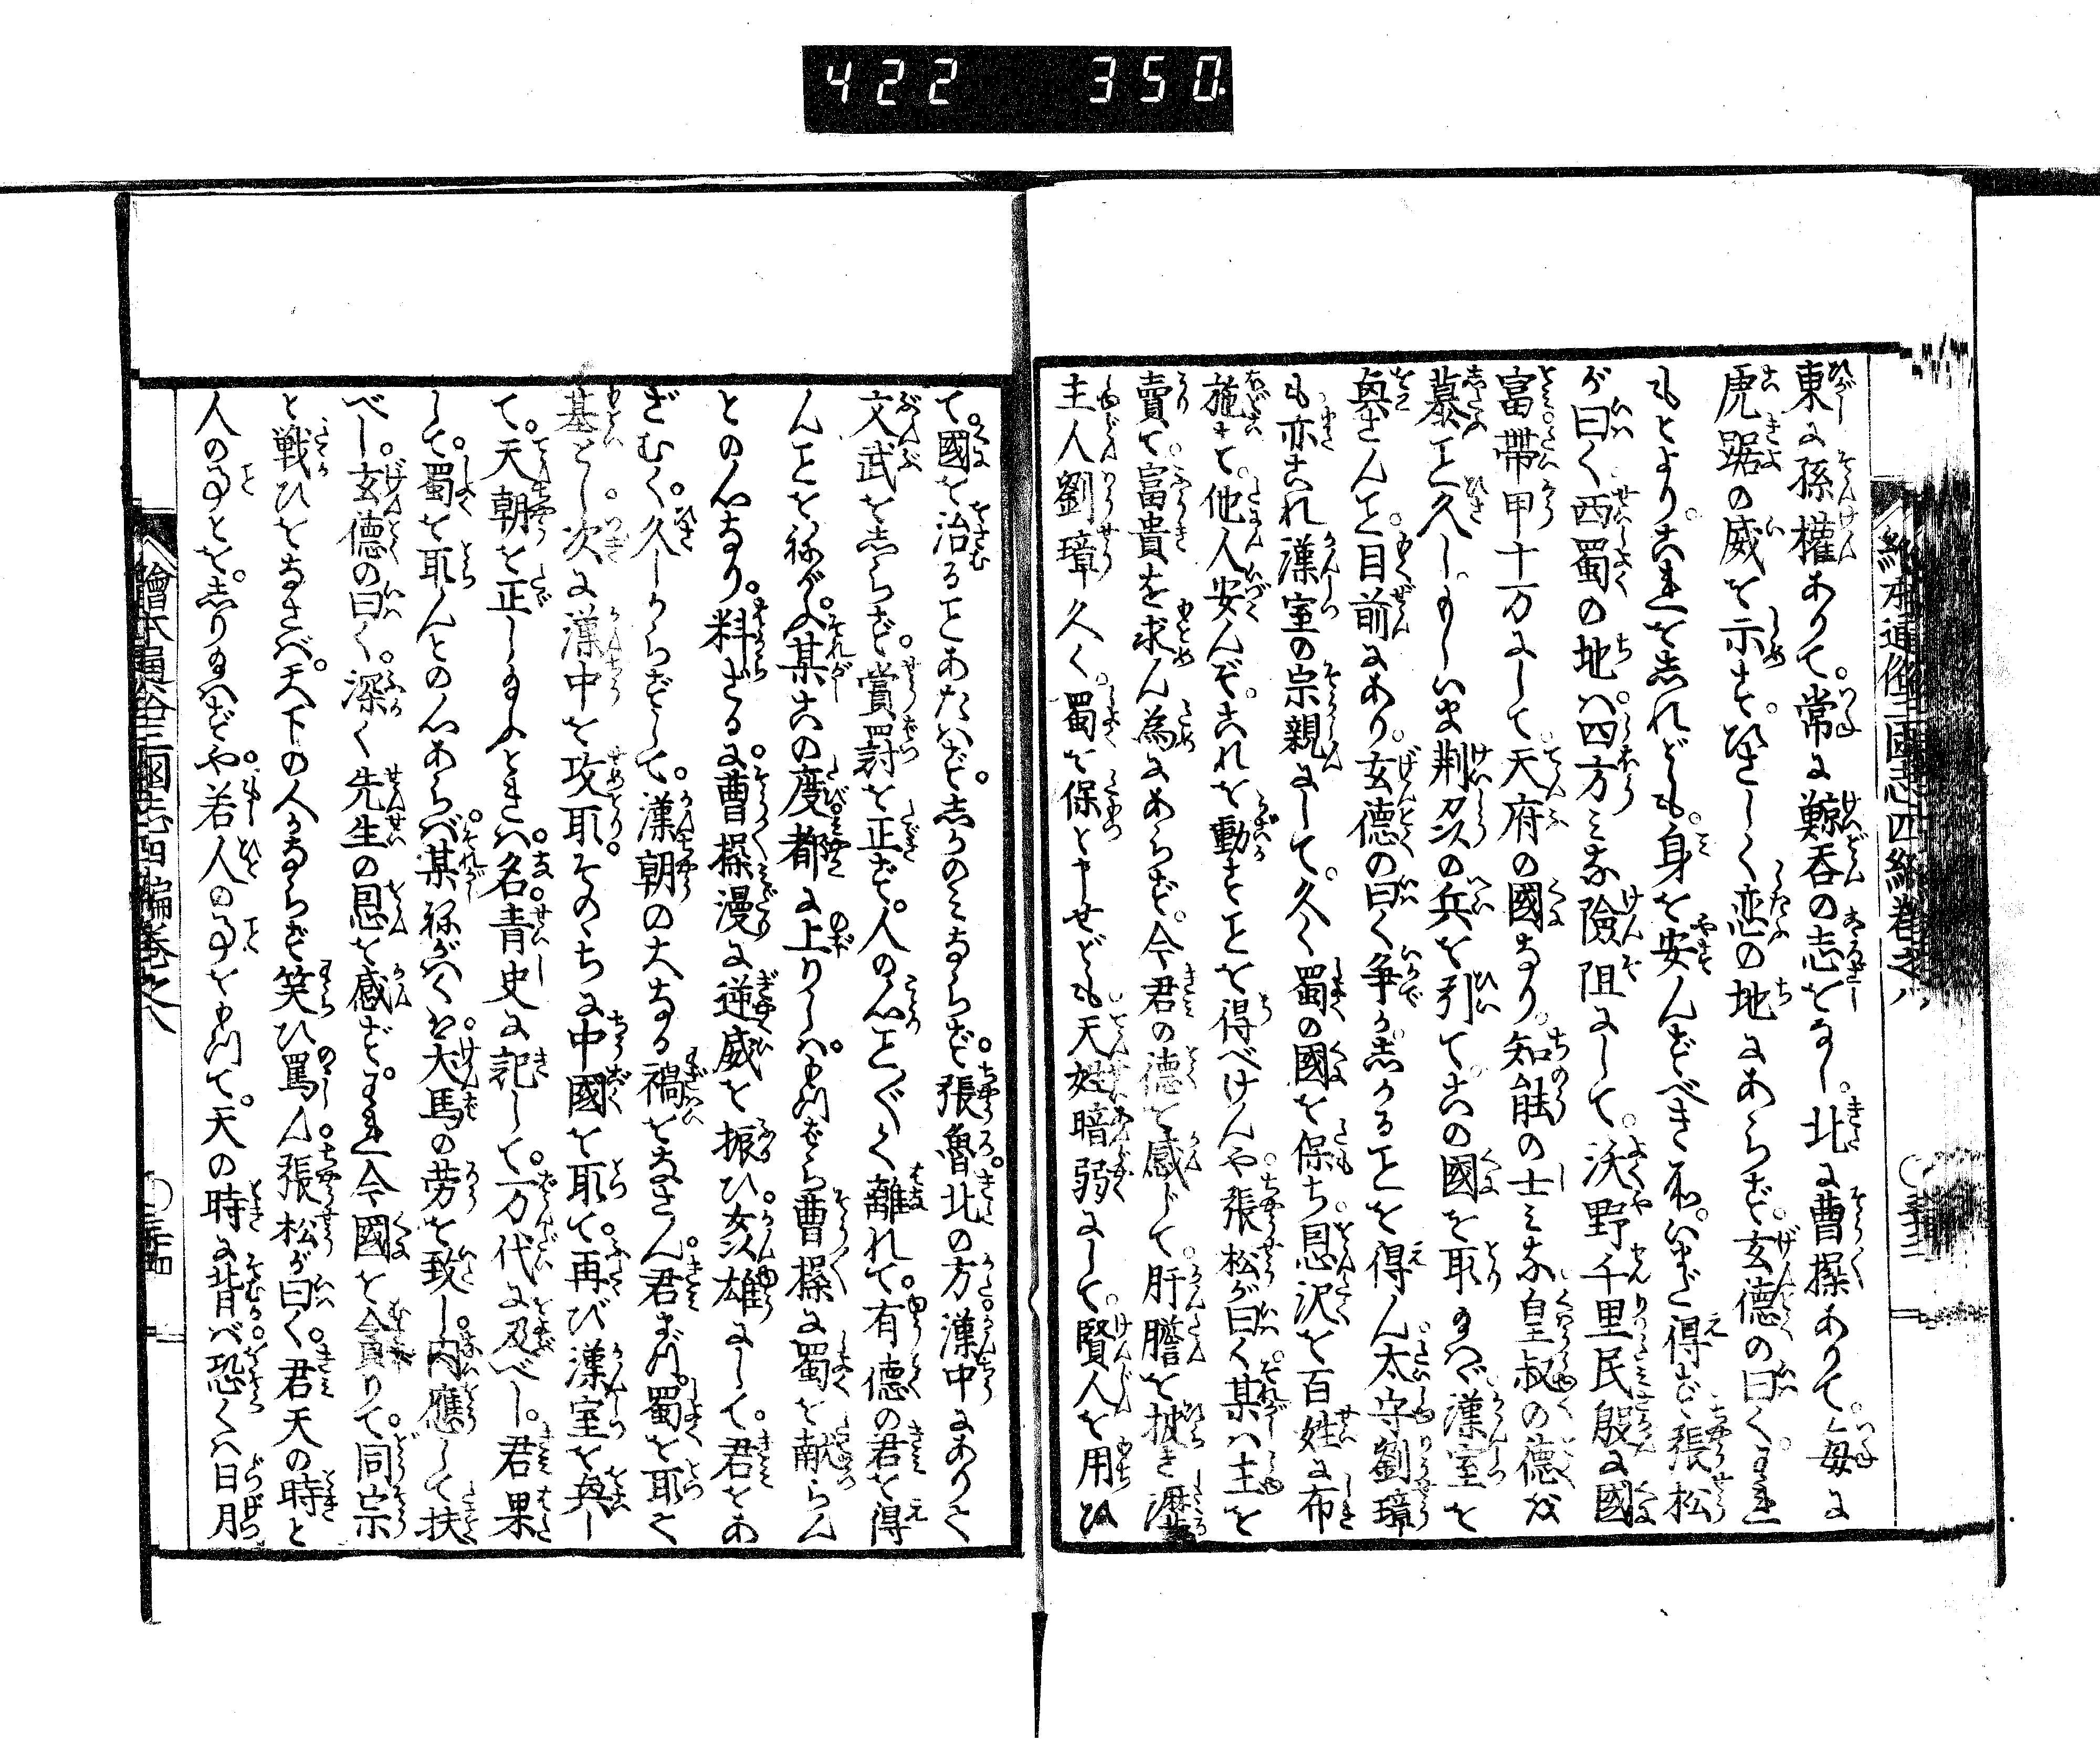 422 350
繪本通俗三國志四編卷之八
東に孫權ありて。常に鯨呑の志をなし。北に曹操ありて。毎に
虎踞の威を示す。ひさしく恋の地にあらず。玄徳の曰く。われ
もとより。これを志れども。身を安んずべき所。いまだ得ず。張松
が曰く。西蜀の地ハ。四方ミな險阻にして。沃野千里民殷に國
富。帶甲十万にして。天府の國なり。知能の士ミな皇叔の徳を
慕こと久し。もしいま荊州の兵を引て。この國を取玉ハヾ漢室を
興さんこと。目前にあり。玄徳の曰く争か。志かることを得ん。太守劉璋
も亦これ漢室の宗親にして。久く蜀の國を保ち。恩沢を百姓に布
施して。他人安んぞ。これを動すことを得べけんや。張松が曰く。某ハ主を
賣て。富貴を求ん為にあらず。今君の德を感じて。肝膽を披き瀝
主人劉璋久く。蜀を保とゝ申せども。天姓暗弱にして。賢人を用ひ
て。國を治ることあたハず。志かのミならず。張魯北の方。漢中にありて
文武を志らず。賞罸を正ず。人の心ことごとく離れて。有德の君を得
んことを祢がふ。某この度都に上りしハ。もつぱら曹操に蜀を献らん
との心なり。料ざるに。曹操漫に逆威を振ひ。姦雄にして。君をあ
ざむく。久しからずして。漢朝の大なる禍をなさん。君まづ。蜀を取て
基とし。次に漢中を攻取。そのゝちに中國を取て。再び漢室を興し
て。天朝を正し玉ふときハ。名青史に記して。万代に及べし。君果
して。蜀を取んとの心あらバ。某祢がハくハ。犬馬の劳を致し。内應して扶
べし。玄德の曰く。深く先生の恩を感ず。われ今國を貪りて。同宗
と戦ひをなさバ。天下の人かならず笑ひ罵ん。張松が曰く。君天の時と
人の事とを。志り玉ハずや。若人の事をもつて。天の時に背バ。恐くハ日月
繪本通俗三國志四編卷之八